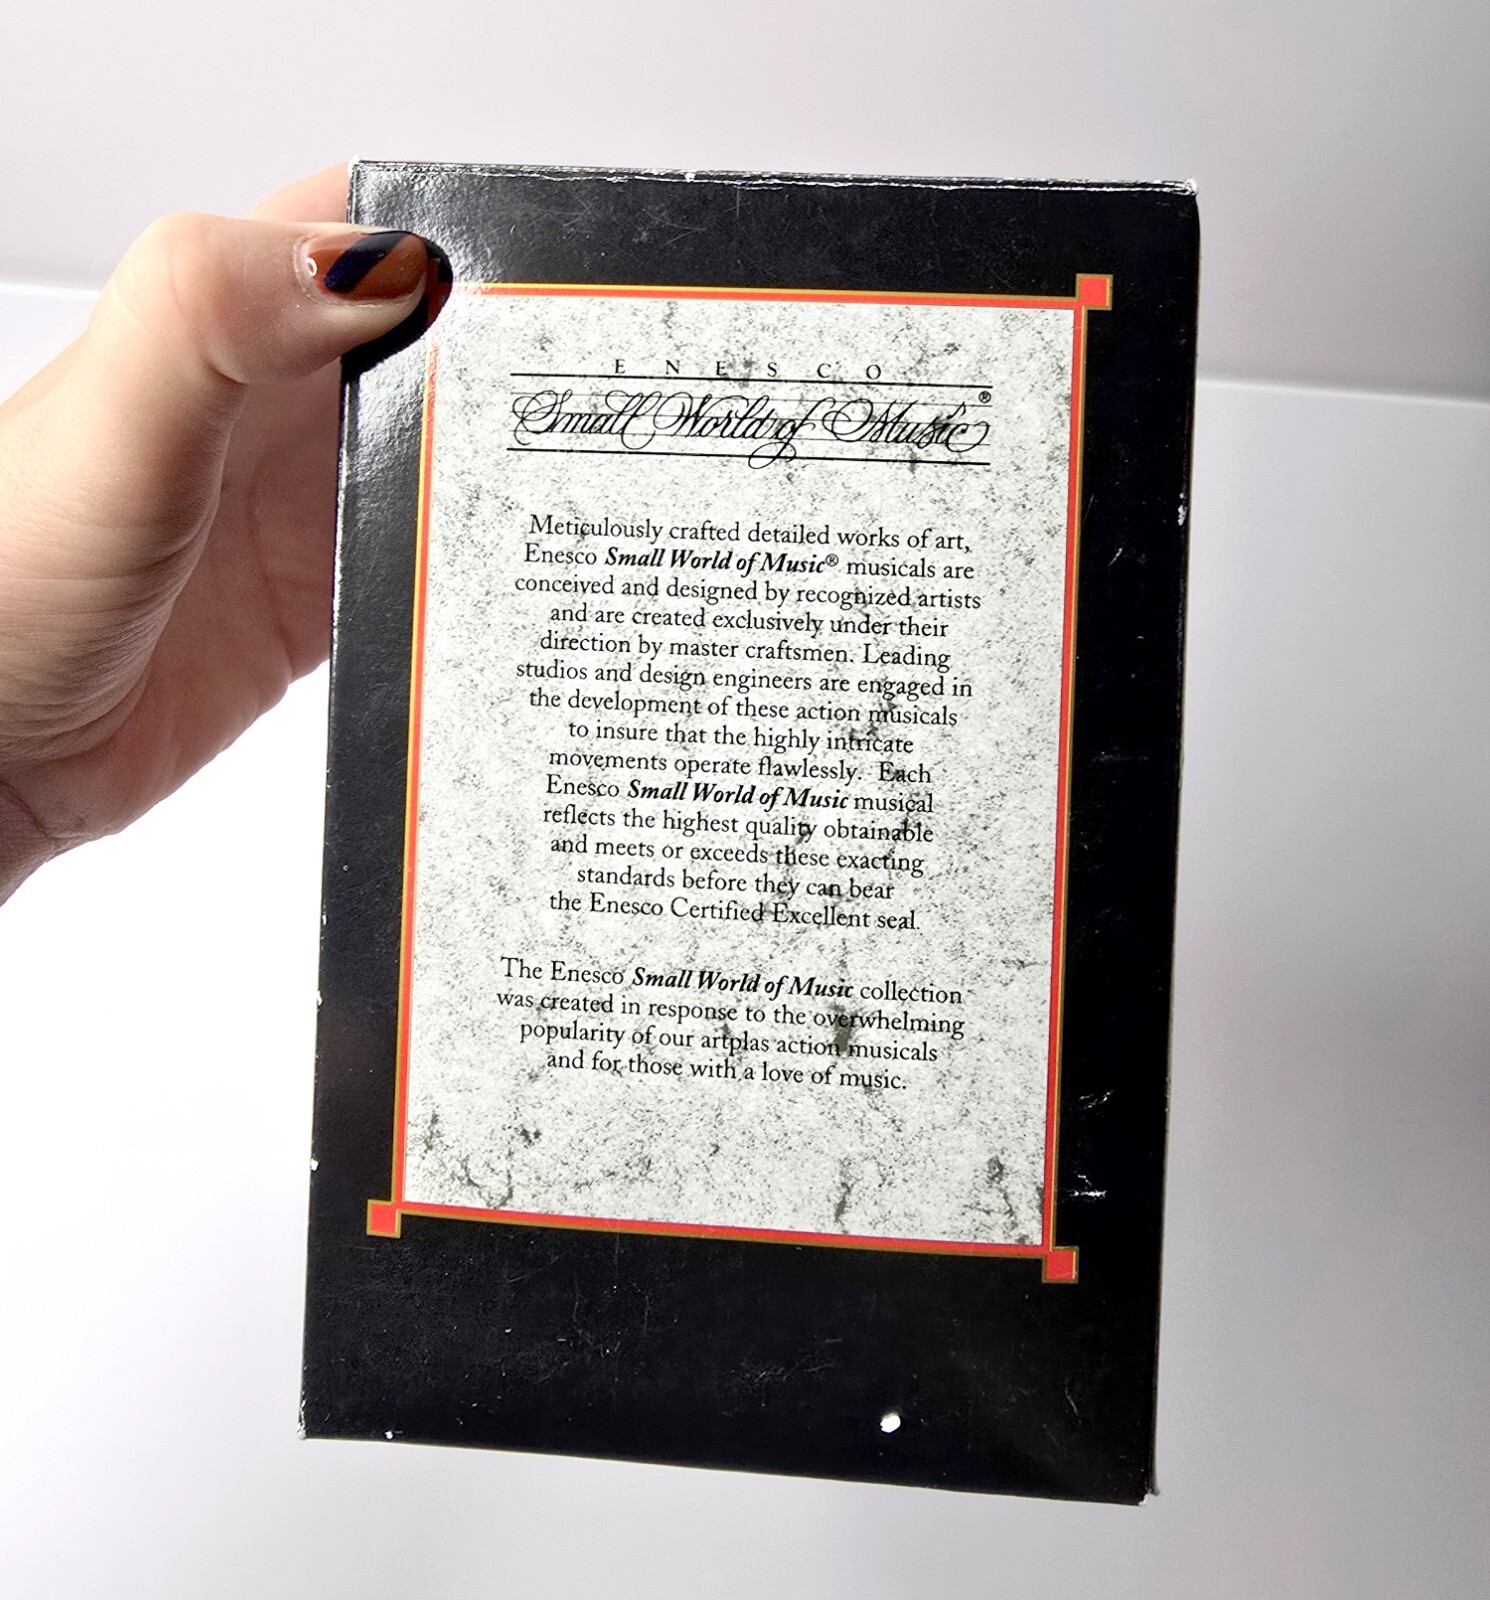 ENESCO
Small World of Music®
Meticulously crafted detailed works of art,
Enesco Small World of Music® musicals are
conceived and designed by recognized artists
and are created exclusively under their
direction by master craftsmen. Leading
studios and design engineers are engaged in
the development of these action musicals
to insure that the highly intricate
movements operate flawlessly. Each
Enesco Small World of Music musical
reflects the highest quality obtainable
and meets or exceeds these exacting
standards before they can bear
the Enesco Certified Excellent seal.
The Enesco Small World of Music collection
was created in response to the overwhelming
popularity of our artplas action musicals
and for those with a love of music.